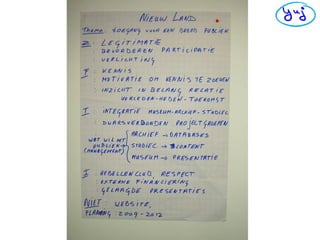 NIEUW LAND
Thema: TOEGANG VOOR EEN BREED PUBLIEK
Z: LEGITIMATIE
: BEVORDEREN PARTICIPATIE
: VERLICHTING
: KENNIS
: MOTIVATIE OM KENNIS TE ZOEKEN
: INZICHT IN BELANG RELATIE
VERLEDEN-HEDEN-TOEKOMST
I: INTEGRATIE MUSEUM-ARCHIEF-STUDIEC
: DWARSVERBANDEN PROJECTGROEPEN
WAT WIL HET PUBLIEK → (MANAGEMENT)
ARCHIEF → DATABASES
STUDIEC → CONTENT
MUSEUM → PRESENTATIE
I: REBELLENCLUB RESPECT
: EXTERNE FINANCIERING
: GELAAGDE PRESENTATIES
NIET: WEBSITE,
PLANNING 2009-2012
yuj